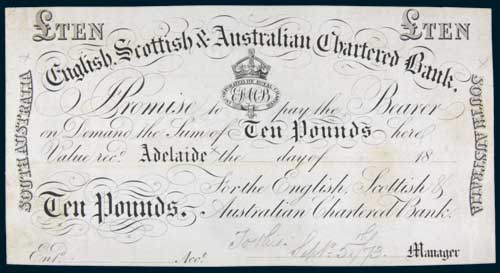 £TEN £TEN
English, Scottish & Australian Chartered Bank.
SOUTH AUSTRALIA
SOUTH AUSTRALIA
I Promise to pay the Bearer
on Demand the Sum of Ten Pounds here
Value recd. Adelaide the day of 18
For the English, Scottish &
Ten Pounds. Australian Chartered Bank.
Sept. 5/73
Entd. Acct. Manager